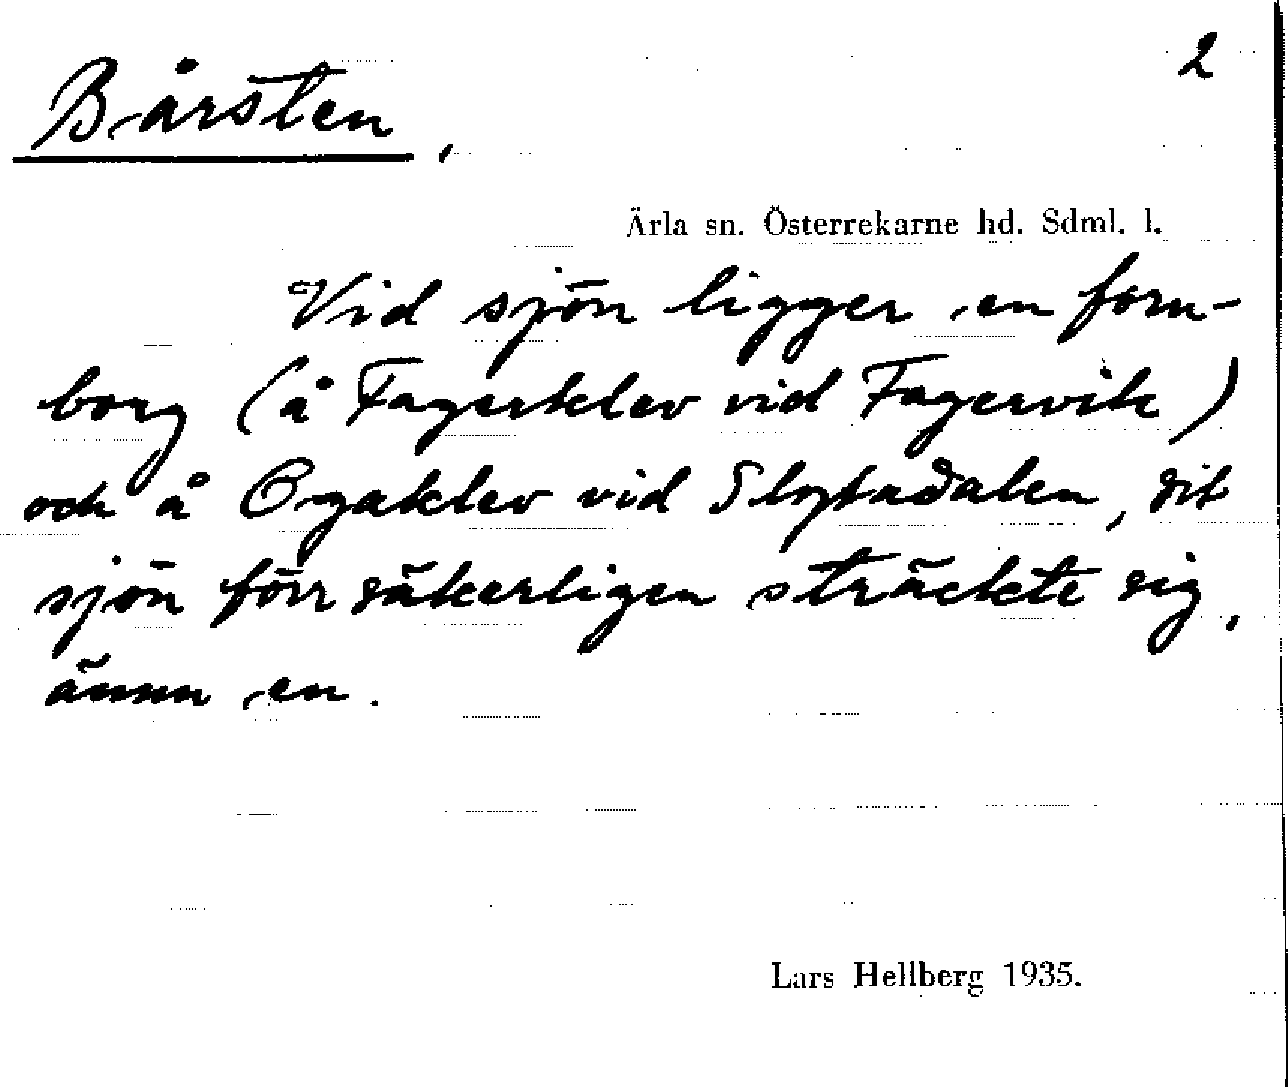 2
Bårsten,
Ärla sn. Österrekarne hd. Sdml. l.
Vid sjön ligger en forn-
borg (å Fagerklev vid Fagervik)
och å Orgaklev vid Slogtadalen, dit
sjön förr säkerligen sträckte sig,
ännu en.
Lars Hellberg 1935.